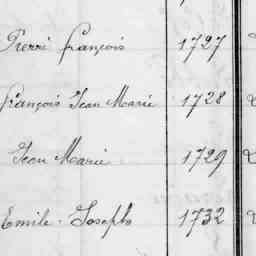 Pierre François 1727
François Jean Marie 1728
Jean Marie 1729
Emile. Joseph 1732